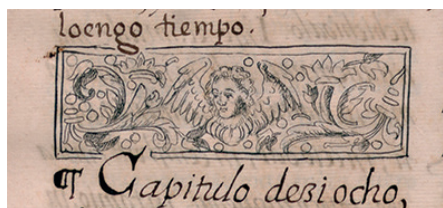 loengo tiempo.
¶ Capitulo desiocho,